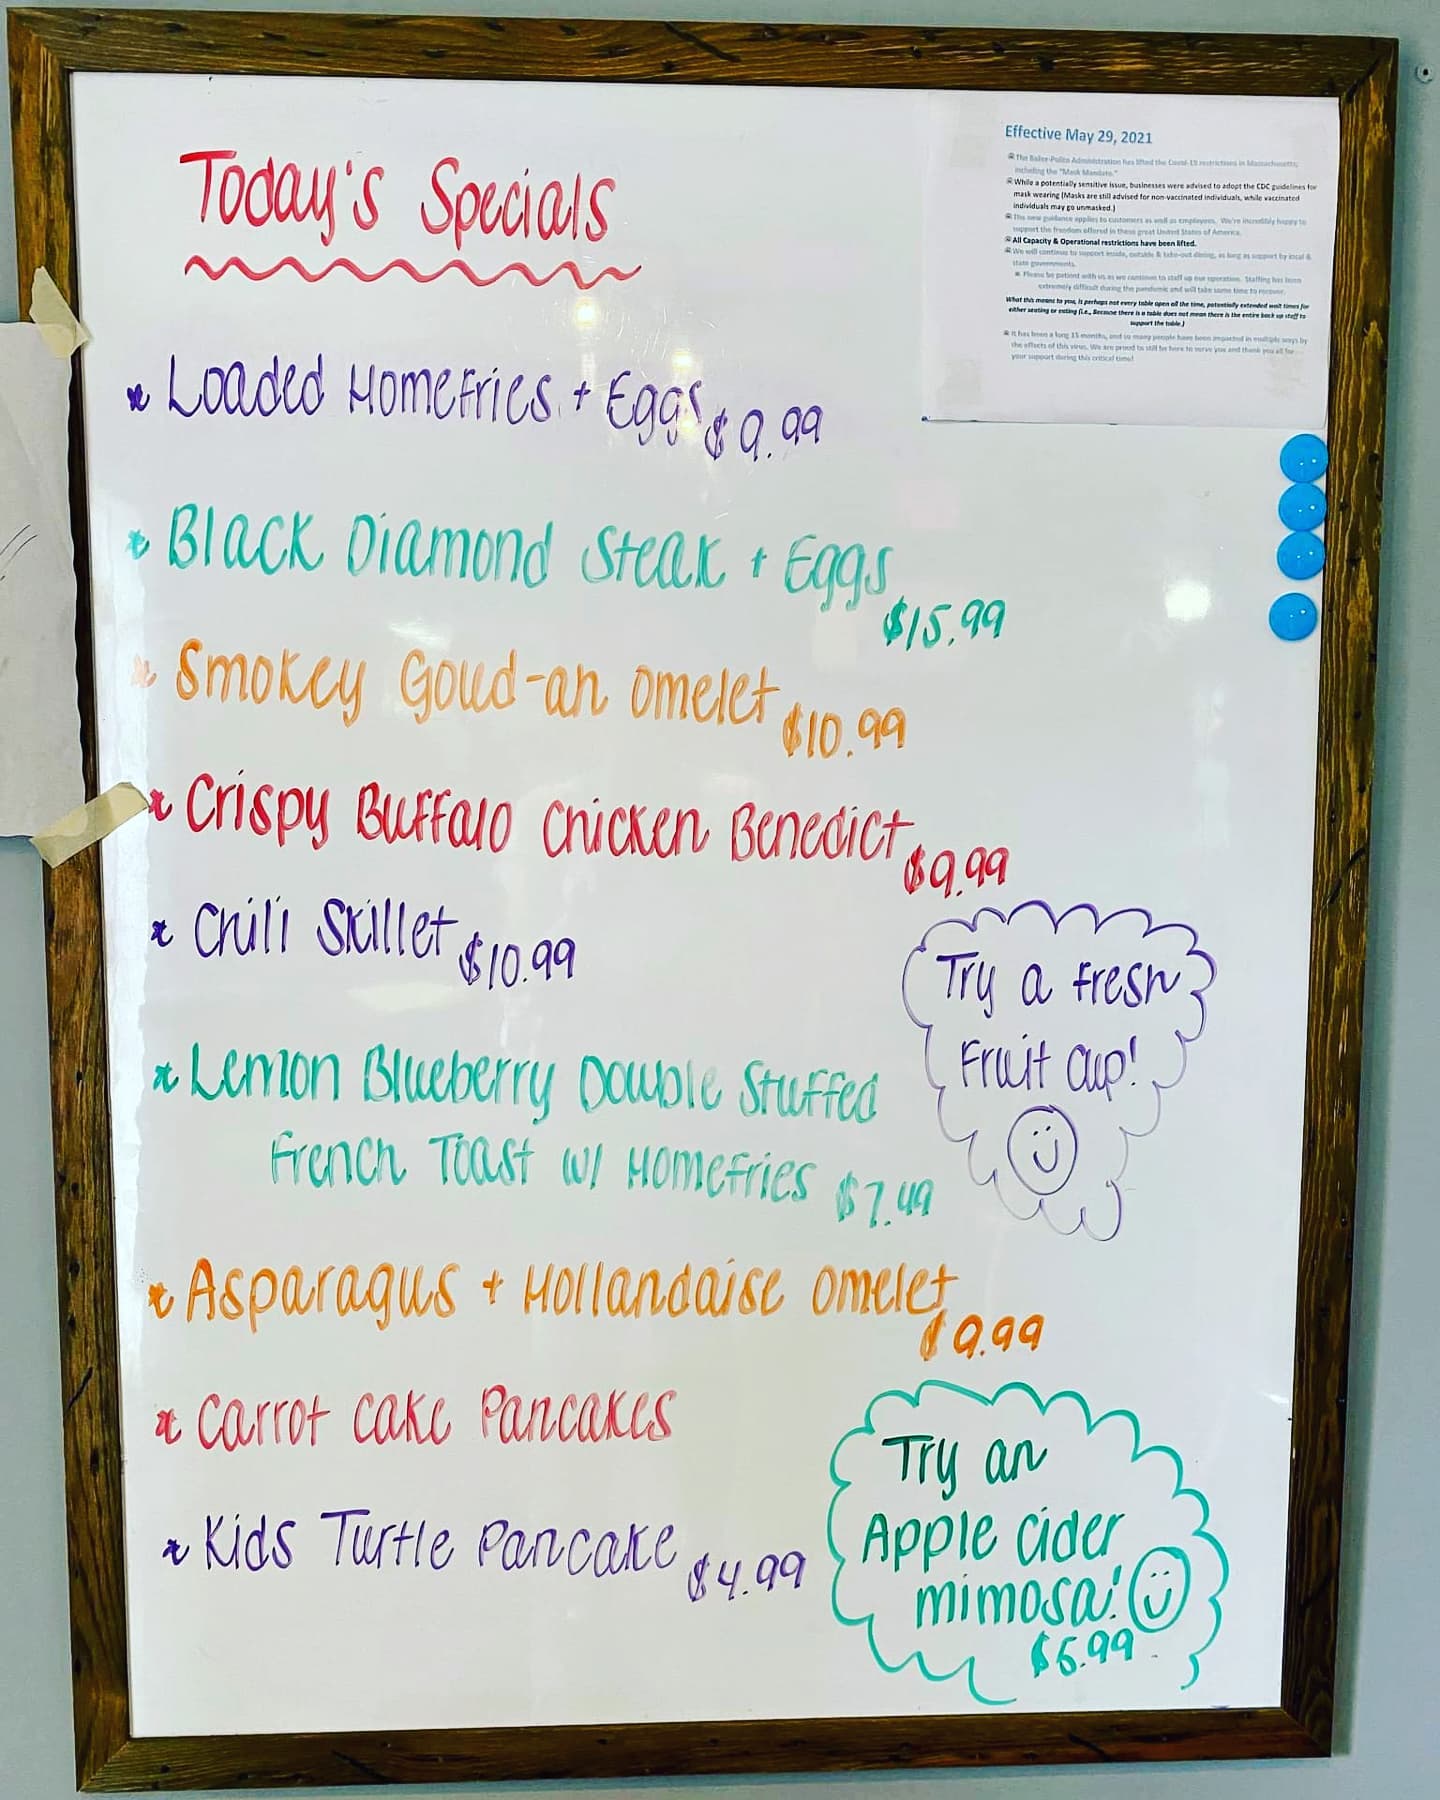 Today's Specials
Effective May 29, 2021
The Baker-Polito Administration has lifted the Covid-19 restrictions in Massachusetts;
including the "Mask Mandate."
While a potentially sensitive issue, businesses were advised to adopt the CDC guidelines for
mask wearing (Masks are still advised for non-vaccinated individuals, while vaccinated
individuals may go unmasked.)
This new guidance applies to customers as well as employees. We're incredibly happy to
support the freedom offered in these great United States of America.
All Capacity & Operational restrictions have been lifted.
We will continue to support inside, outside & take-out dining, as long as support by local &
state governments.
Please be patient with us as we continue to staff up our operation. Staffing has been
extremely difficult during the pandemic and will take some time to recover.
What this means to you, is perhaps not every table open all the time, potentially extended wait times for
either seating or eating (i.e., Because there is a table does not mean there is the entire back up staff to
support the table.)
It has been a long 15 months, and so many people have been impacted in multiple ways by
the effects of this virus. We are proud to still be here to serve you and thank you all for
your support during this critical time!
* Loaded Homefries + Eggs $9.99
* Black Diamond Steak + Eggs
$15.99
* Smokey Goud-an Omelet $10.99
* Crispy Buffalo Chicken Benedict $9.99
* Chili Skillet $10.99
Try a fresh
Fruit Cup!
* Lemon Blueberry Double Stuffed
French Toast w/ Homefries $7.49
* Asparagus + Hollandaise Omelet
$9.99
* Carrot Cake Pancakes
* Kids Turtle Pancake $4.99
Try an
Apple Cider
mimosa!
$6.99